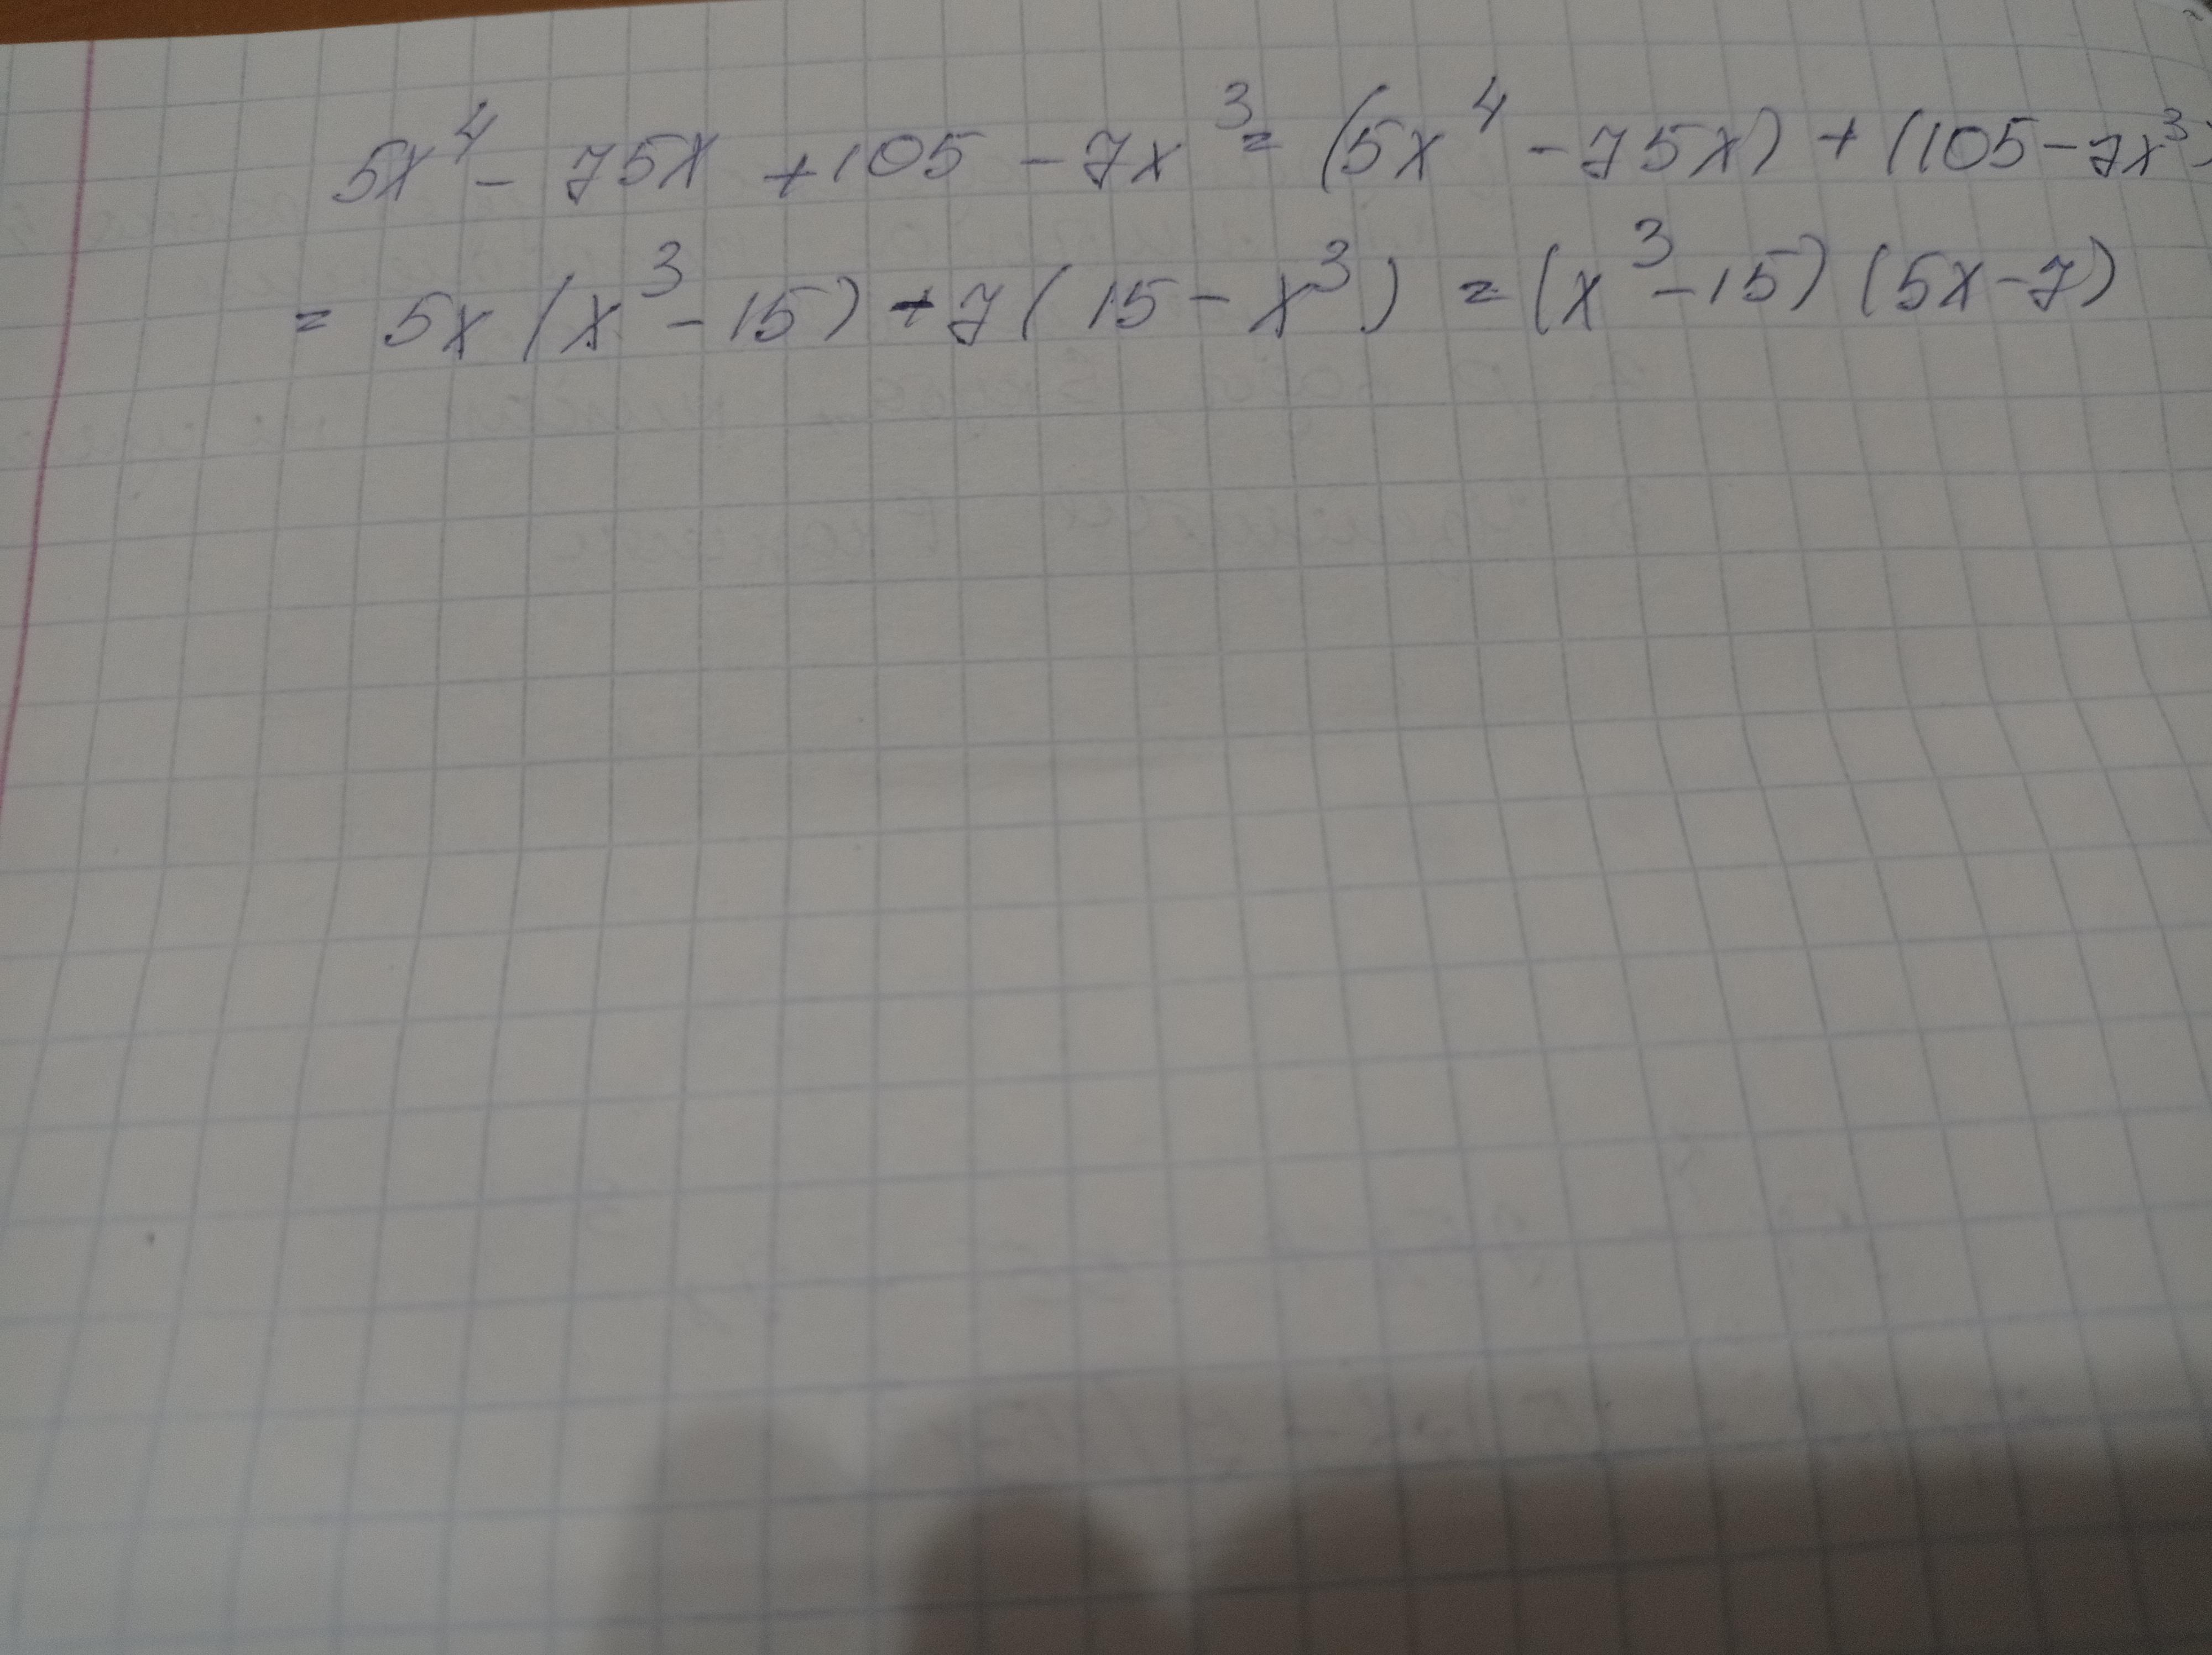 5x⁴ - 75x + 105 - 7x³ = (5x⁴ - 75x) + (105 - 7x³)
= 5x(x³ - 15) + 7(15 - x³) = (x³ - 15)(5x - 7)